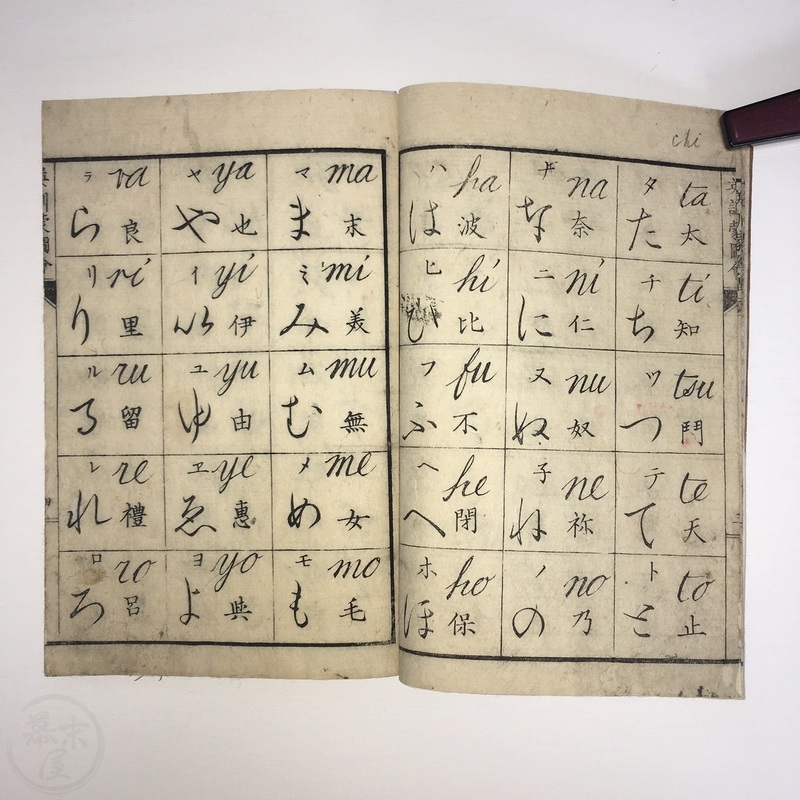 chi
タ ta
た 太
チ ti
ち 知
ツ tsu
つ 鬥
テ te
て 天
ト to
と 止
na
な 奈
ニ ni
に 仁
ヌ nu
ぬ 奴
子 ne
ね 祢
ノ no
の 乃
ハ ha
は 波
ヒ hi
ひ 比
フ fu
ふ 不
ヘ he
へ 閉
ホ ho
ほ 保
マ ma
ま 末
ミ mi
み 美
ム mu
む 無
メ me
め 女
モ mo
も 毛
ヤ ya
や 也
イ yi
い 伊
ユ yu
ゆ 由
ヱ ye
ゑ 惠
ヨ yo
よ 與
ラ ra
ら 良
リ ri
り 里
ル ru
る 留
レ re
れ 禮
ロ ro
ろ 呂
幕末屋